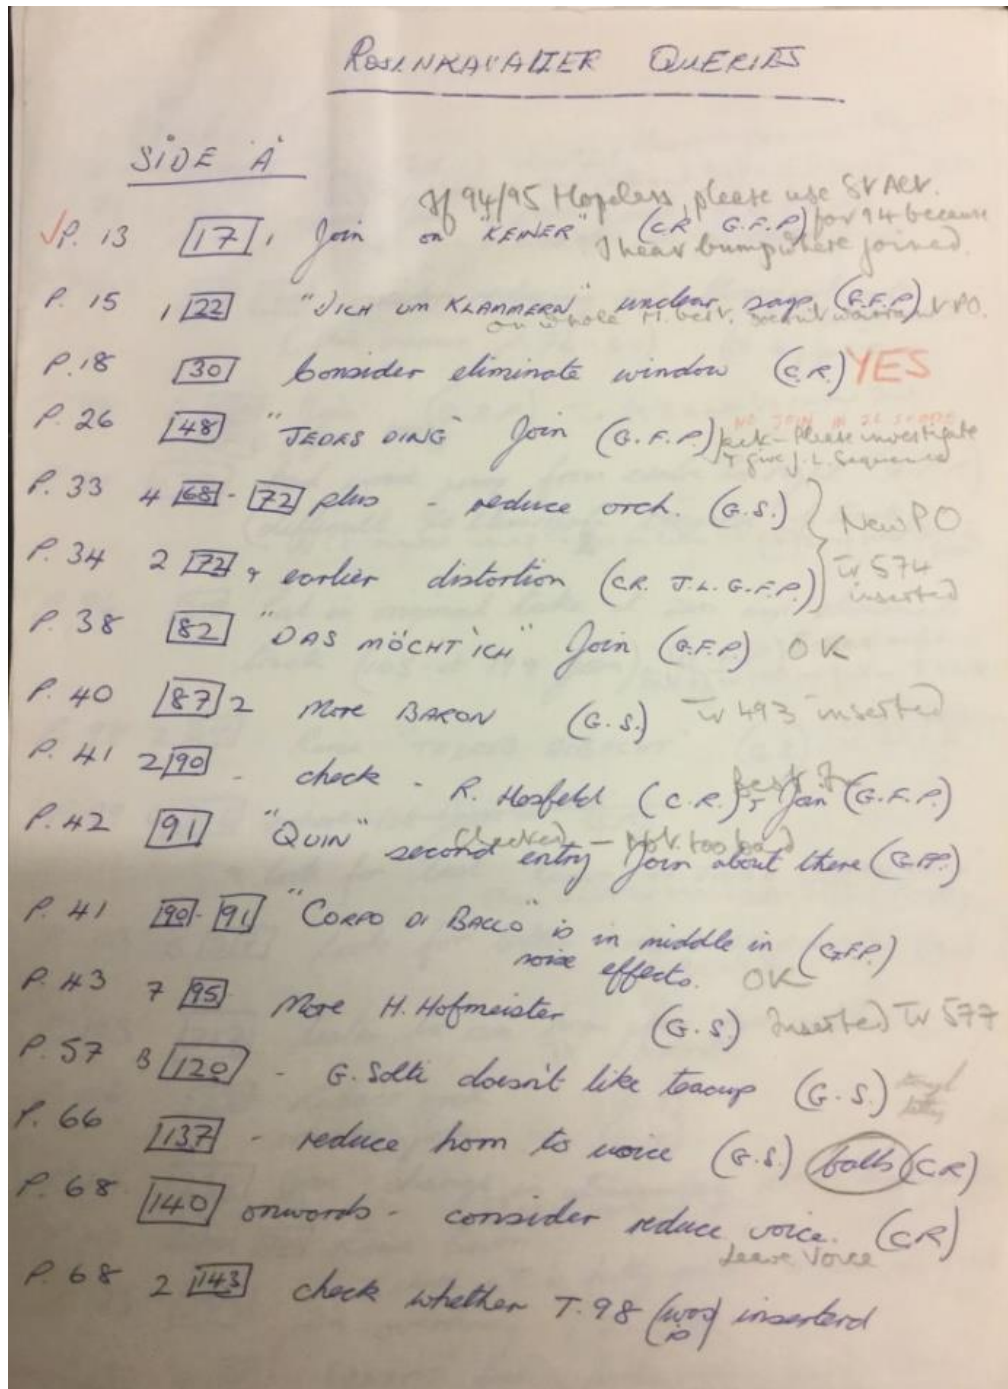 ROSENKAVALIER QUERIES
SIDE 'A'
If 94/95 Hopeless, please use
√P. 13 [17], Join on "KEINER" (C.R G.F.P.) for 94 because
I hear bump where joined.
P. 15 1 [22] "DICH UM KLAMMERN" unclear says (G.F.P.)
on whole M. best.
P. 18 [30] Consider eliminate window (C.R.) YES
NO JOIN IN
P. 26 [48] "JEDES DING" Join (G.F.P.) Please investigate
& give J.L. Sequence
P. 33 4 [68] - [72] plus - reduce orch. (G.S.) } New PO
P. 34 2 [72] & earlier distortion (C.R. J.L. G.F.P.) } Tr 574
inserted
P. 38 [82] "DAS MÖCHT ICH" Join (G.F.P.) OK
P. 40 [87] 2 More BARON (G.S.) Tr 493 inserted
P. 41 2 [90] - check - R. Hosfeld (C.R.), Join (G.F.P.)
P. 42 [91] "QUIN" second entry Join about there (G.F.P.)
Checked - Not too bad
P. 41 [90] - [91] "CORPO DI BACCO" is in middle in (G.F.P.)
noise effects. OK
P. 43 7 [95] More H. Hofmeister (G.S.) Inserted Tr 577
P. 57 3 [120] - G. Solti doesn't like teacup (G.S.)
P. 66 [137] - reduce horn to voice (G.S.) balls (C.R)
P. 68 [140] onwards - consider reduce voice. (C.R)
Leave Voice
P. 68 2 [143] check whether T.98 (was) inserterd